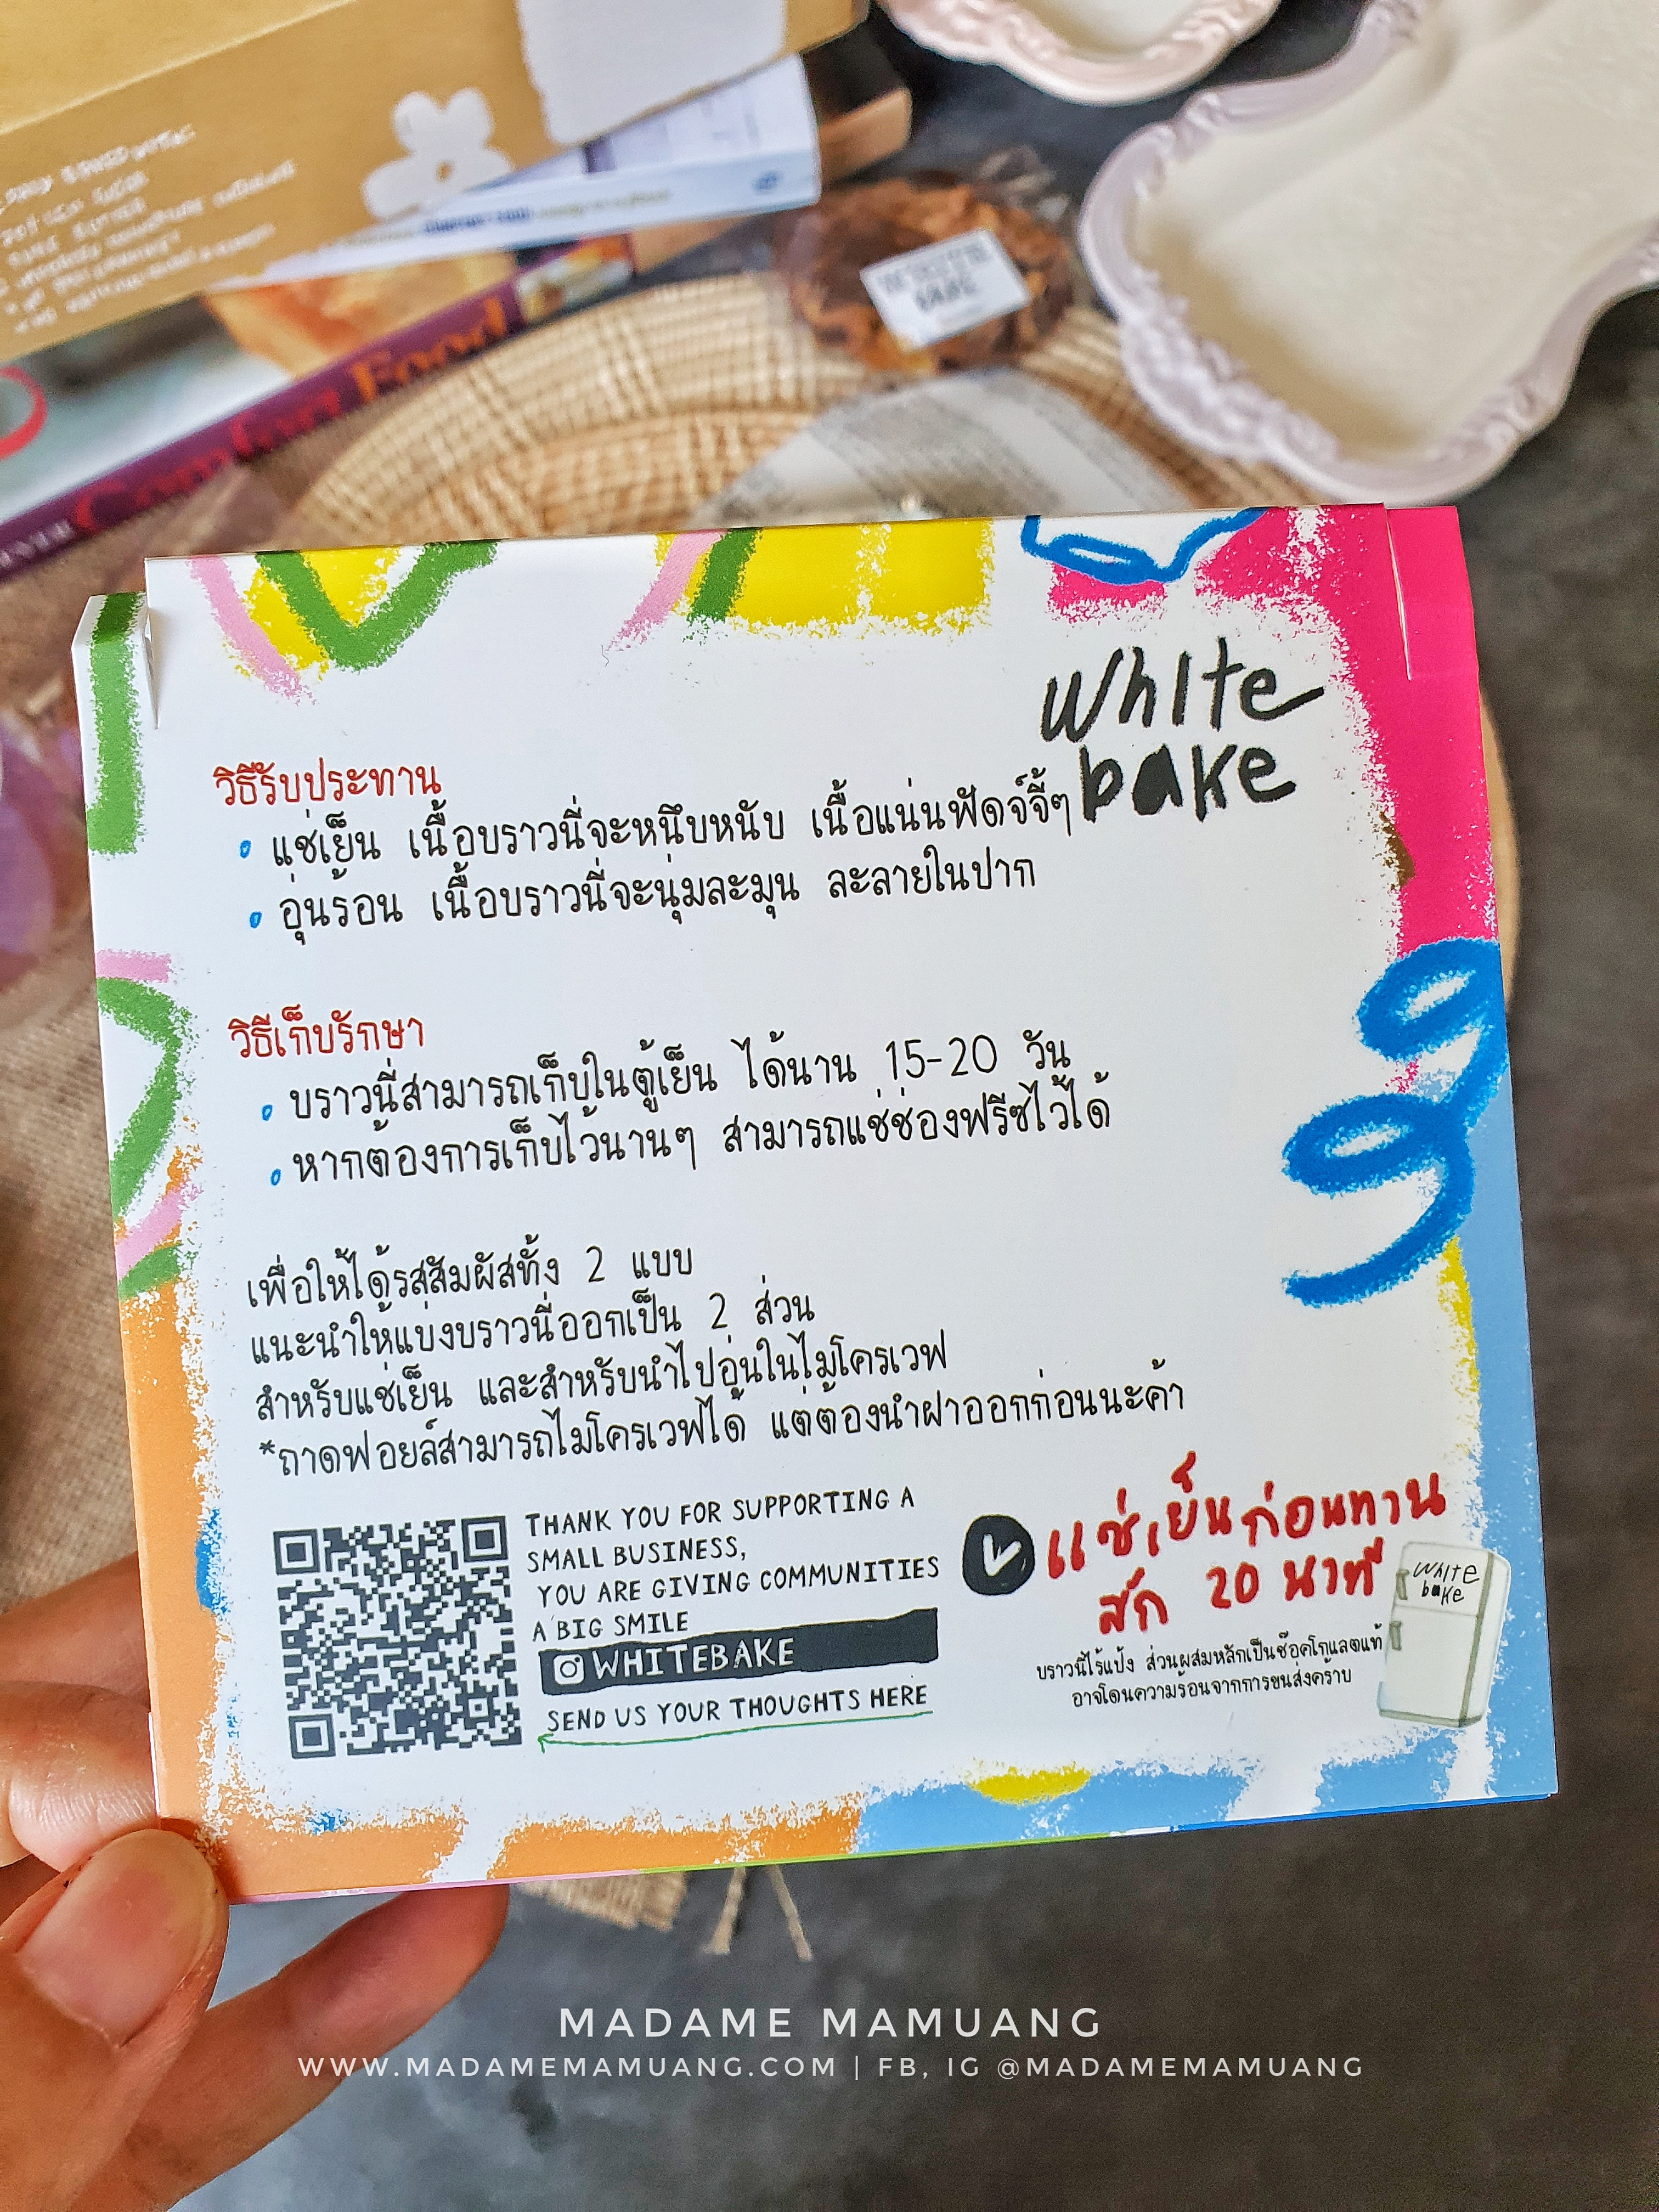 Comfort Food
White
bake
วิธีรับประทาน
• แช่เย็น เนื้อบราวนี่จะหนึบหนับ เนื้อแน่นฟัดจ์จี้ๆ
• อุ่นร้อน เนื้อบราวนี่จะนุ่มละมุน ละลายในปาก
วิธีเก็บรักษา
• บราวนี่สามารถเก็บในตู้เย็น ได้นาน 15-20 วัน
• หากต้องการเก็บไว้นานๆ สามารถแช่ช่องฟรีซไว้ได้
เพื่อให้ได้รสสัมผัสทั้ง 2 แบบ
แนะนำให้แบ่งบราวนี่ออกเป็น 2 ส่วน
สำหรับแช่เย็น และสำหรับนำไปอุ่นในไมโครเวฟ
*ถาดฟอยล์สามารถไมโครเวฟได้ แต่ต้องนำฝาออกก่อนนะค้า
THANK YOU FOR SUPPORTING A
SMALL BUSINESS,
YOU ARE GIVING COMMUNITIES
A BIG SMILE
WHITEBAKE
SEND US YOUR THOUGHTS HERE
แช่เย็นก่อนทาน
สัก 20 นาที
White
bake
บราวนี่ไร้แป้ง ส่วนผสมหลักเป็นช๊อคโกแลตแท้
อาจโดนความร้อนจากการขนส่งคร้าบ
MADAME MAMUANG
WWW.MADAMEMAMUANG.COM | FB, IG @MADAMEMAMUANG